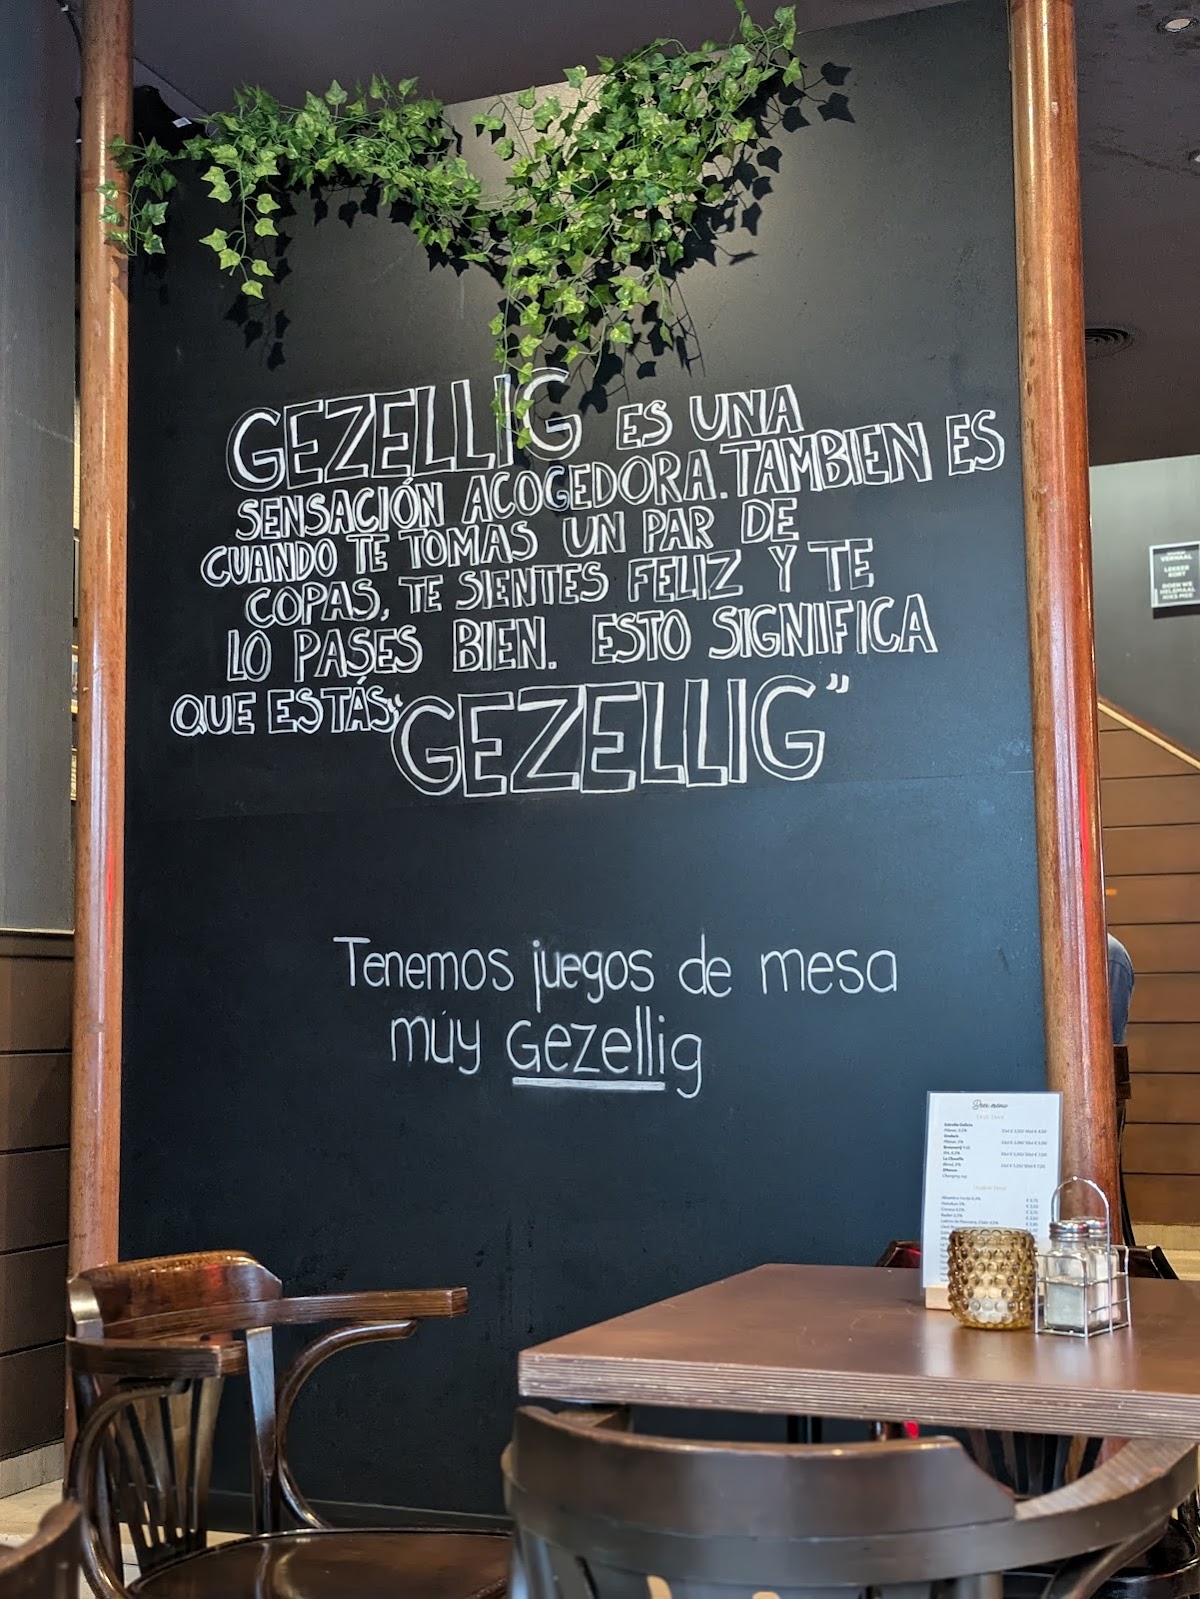 GEZELLIG ES UNA
SENSACIÓN ACOGEDORA. TAMBIEN ES
CUANDO TE TOMAS UN PAR DE
COPAS, TE SIENTES FELIZ Y TE
LO PASES BIEN. ESTO SIGNIFICA
QUE ESTÁS "GEZELLIG"
Tenemos juegos de mesa
múy Gezellig
VERHAAL
LEKKER
KORT
DOEN WE
HELEMAAL
NIKS MEE